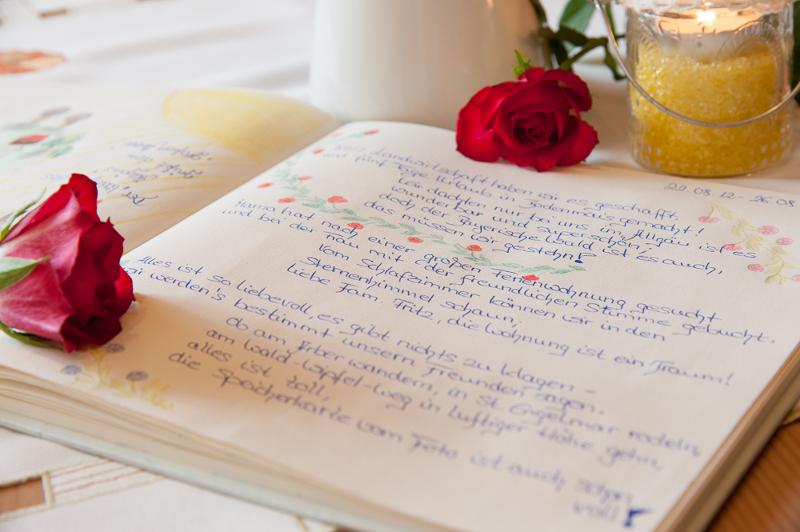 20.08.12 - 26.08
Landwirtschaft haben wir es geschafft,
und fünf Tage Urlaub in Bodenmais gemacht!
Wir dachten nur bei uns im Allgäu ist es
wunderbar und superschön -
doch der Bayerische Wald ist es auch,
das müssen wir gestehn!
Hanna hat nach einer großen Ferienwohnung gesucht
und bei der Frau mit der freundlichen Stimme gebucht.
Vom Schlafzimmer können wir in den
Sternenhimmel schaun,
liebe Fam. Fritz, die Wohnung ist ein Traum!
Alles ist so liebevoll, es gibt nichts zu klagen -
wir werden's bestimmt unsern Freunden sagen.
Ob am Arber wandern, in St. Engelmar rodeln,
am Wald-Wipfel-Weg in luftiger Höhe gehn,
alles ist toll,
die Speicherkarte vom Foto ist auch schon
voll!